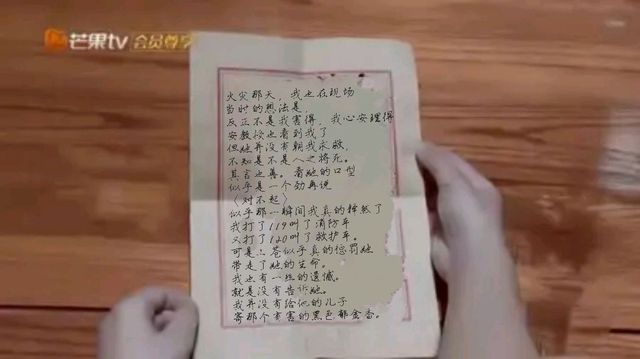 芒果tv 会员尊享
火灾那天，我也在现场
当时的想法是，
反正不是我害得，我心安理得
安教授也看到我了
但她并没有朝我求救
不知是不是人之将死。
其言也善。看她的口型
似乎是一个劲再说
〈对不起〉
似乎那一瞬间我真的释然了
我打了119叫了消防车
又打了120叫了救护车。
可是上苍似乎真的惩罚她
带走了她的生命。
我也有一丝的遗憾。
就是没有告诉她。
我并没有给他的儿子
寄那个有害的黑色郁金香。